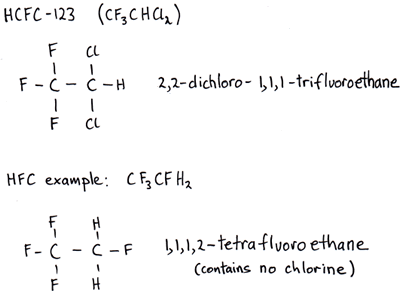 HCFC-123 (CF₃CHCl₂)
F Cl
F - C - C - H 2,2-dichloro-1,1,1-trifluoroethane
F Cl
HFC example: CF₃CFH₂
F H
F - C - C - F 1,1,1,2-tetrafluoroethane
(contains no chlorine)
F H